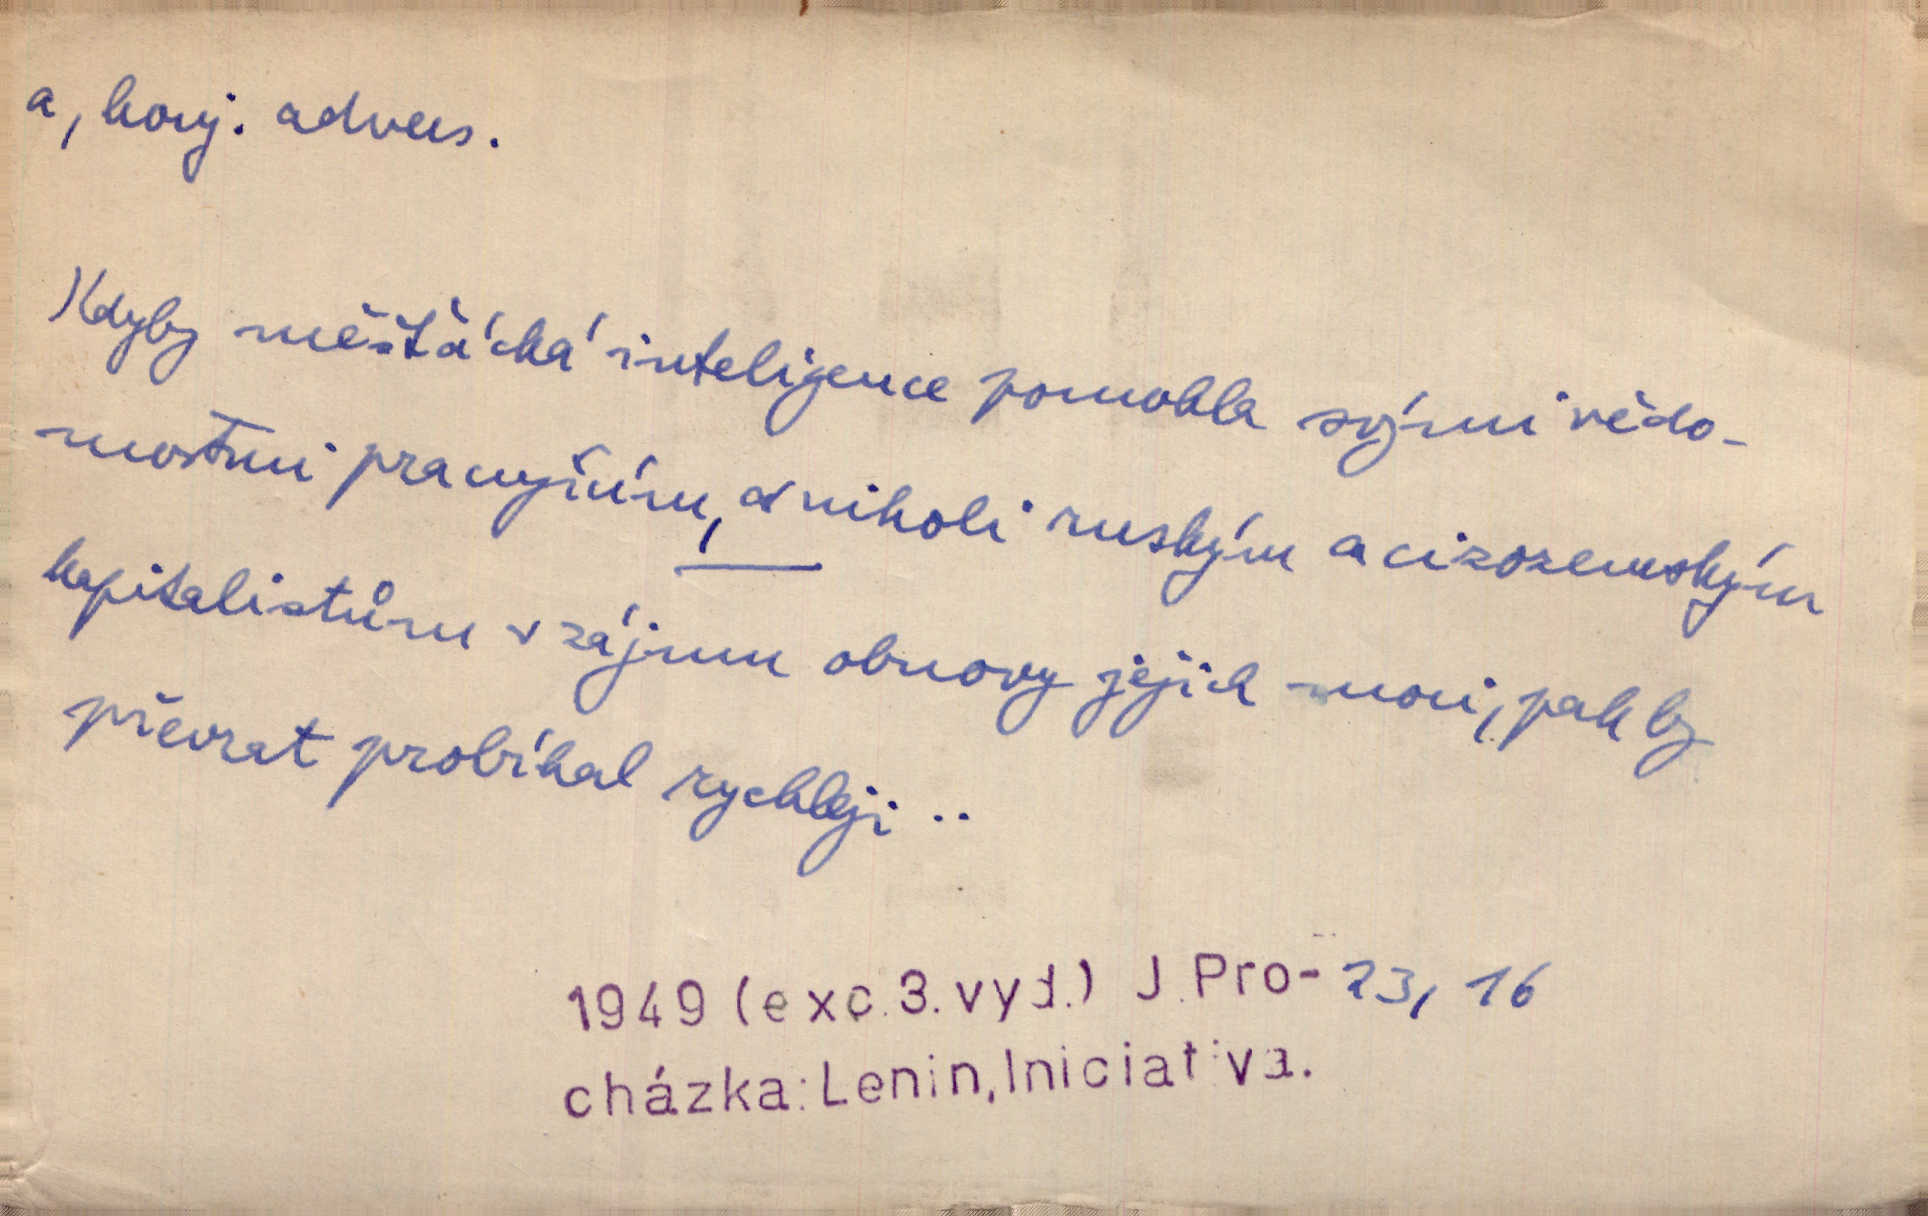 a, konj. advers.
Kdyby měšťácká inteligence pomohla svými vědo-
mostmi pracujícím, a nikoli ruským a cizozemským
kapitalistům v zájmu obnovy jejich moci, pak by
převrat probíhal rychleji ..
1949 (exc. 3. vyd.) J. Pro- 23, 16
cházka: Lenin, Iniciativa.